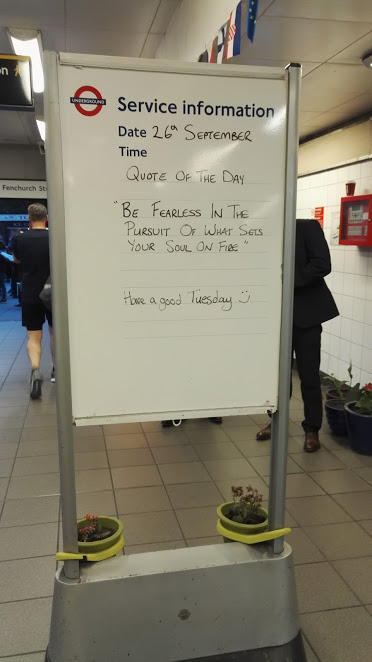 UNDERGROUND
Service information
Date 26th SEPTEMBER
Time
QUOTE OF THE DAY
"BE FEARLESS IN THE
PURSUIT OF WHAT SETS
YOUR SOUL ON FIRE"
Have a good Tuesday :)
Fenchurch St